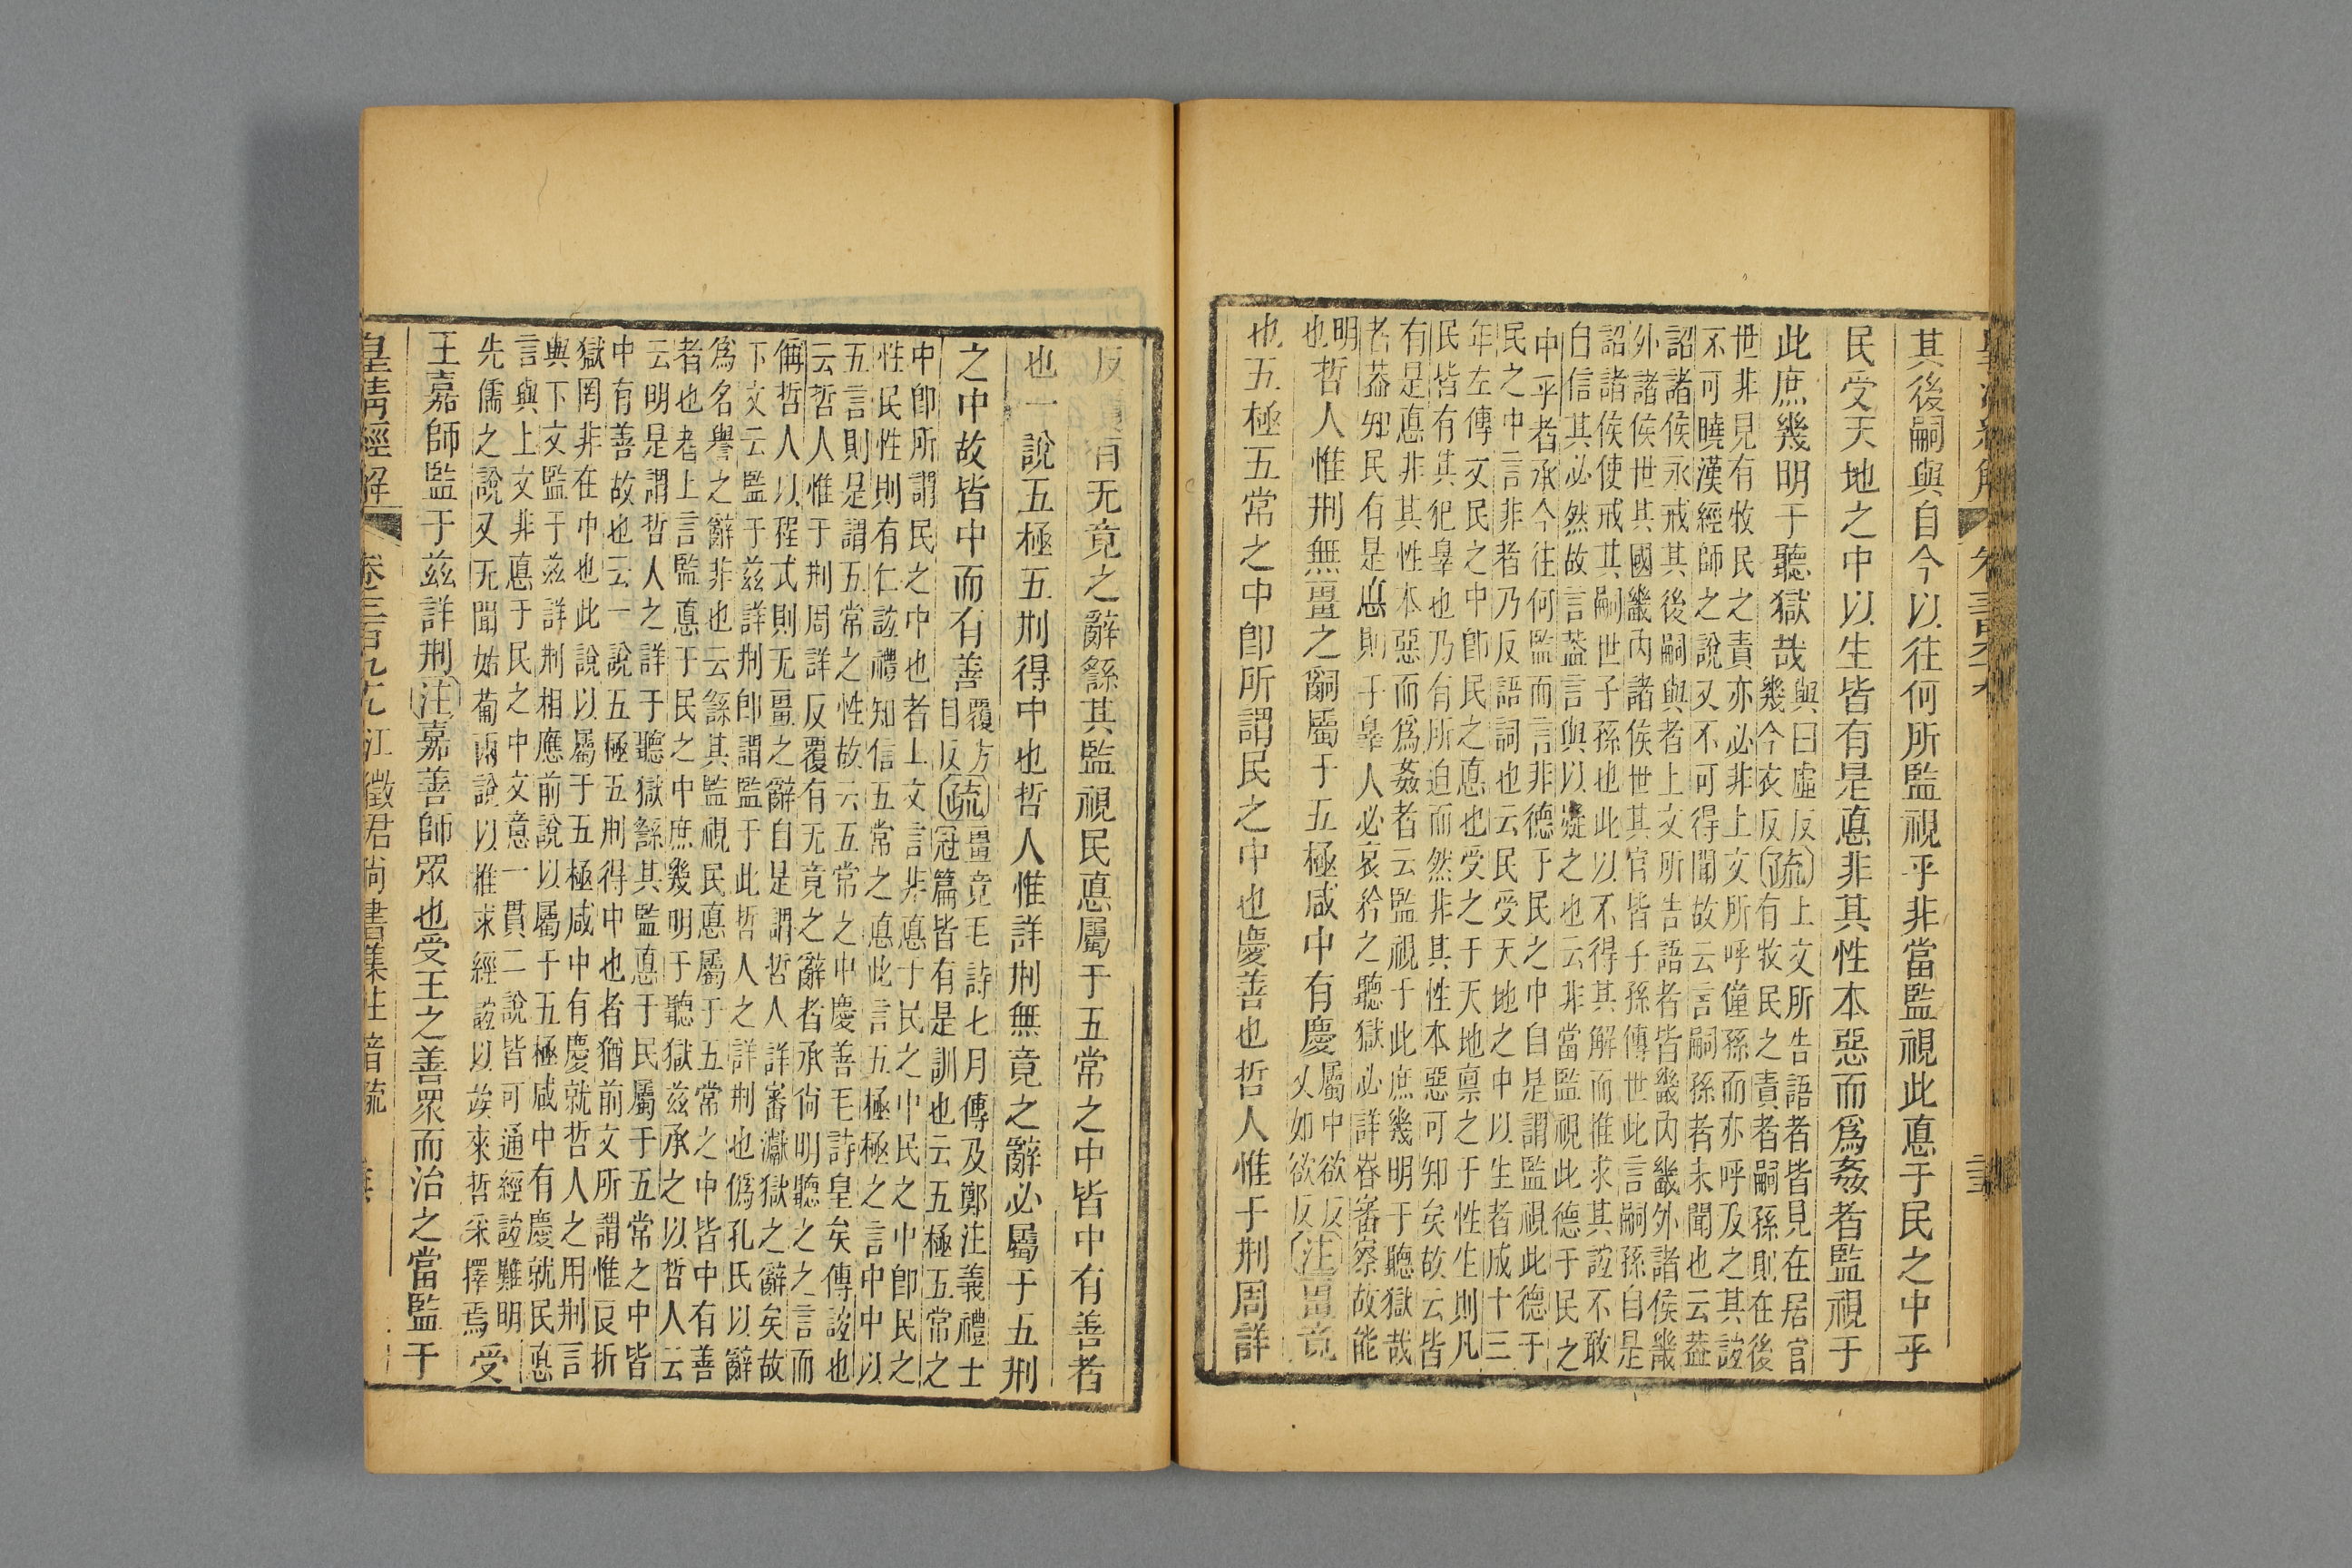 其後嗣與自今以往何所監視乎非當監視此悳于民之中乎
民受天地之中以生皆有是悳非其性本惡而爲姦者監視于
此庶幾明于聽獄哉
與曰虛反
幾今衣反
疏
上文所告語者皆見在居官
有牧民之責者嗣孫則在後
世非見有牧民之責亦必非上文所呼僮孫而亦呼及之其誼
不可曉漢經師之說又不可得聞故云言嗣孫者未聞也云葢
詔諸侯永戒其後嗣與者上文所告語者皆畿內畿外諸侯畿
外諸侯世其國畿內諸侯世其官皆子孫傳世此言嗣孫自是
詔諸侯使戒其嗣世子孫也此以不得其解而推求其誼不敢
白信其必然故言葢言與以疑之也云非當監視此德于民之
中乎者承今往何監而言非德于民之中自是謂監視此德于
民之中言非者乃反語詞也云民受天地之中以生者成十三
年左傳文民之中卽民之悳也受之于天地禀之于性生則凡
民皆有其犯辠也乃有所迫而然非其性本惡可知矣故云皆
有是悳非其性本惡而爲姦者云監視于此庶幾明于聽獄哉
者葢知民有是悳則于辠人必哀矜之聽獄必詳眘審察故能
明
也
哲人惟刑無畺之辭屬于五極咸中有慶
屬中欲反
乂如欲反
注
畺竟
也五極五常之中卽所謂民之中也慶善也哲人惟于刑周詳
反覆有无竟之辭繇其監視民悳屬于五常之中皆中有善者
也一說五極五刑得中也哲人惟詳刑無竟之辭必屬于五刑
之中故皆中而有善
覆方
目反
疏
畺竟毛詩七月傳及鄭注義禮士
冠篇皆有是訓也云五極五常之
中卽所謂民之中也者上文言非悳于民之中民之中卽民之
性民性則有仁誼禮知信五常之悳此言五極極之言中中以
五言則是謂五常之性故云五常之中慶善毛詩皇矣傳誼也
云哲人惟于刑周詳反覆有无竟之辭者承尙明聽之之言而
偁哲人以程式則无畺之辭自是謂哲人詳審讞獄之辭矣故
下文云監于茲詳刑卽謂監于此哲人之詳刑也僞孔氏以辭
爲名譽之辭非也云繇其監視民悳屬于五常之中皆中有善
者也者上言監悳于民之中庶幾明于聽獄茲承之以哲人云
云明是謂哲人之詳于聽獄繇其監悳于民屬于五常之中皆
中有善故也云一說五極五刑得中也者猶前文所謂惟良折
獄罔非在中也此說以屬于五極咸中有慶就哲人之用刑言
與下文監于茲詳刑相應前說以屬于五極咸中有慶就民悳
言與上文非悳于民之中文意一貫二說皆可通經誼難明
先儒之說又无聞姑葡兩說以推求經誼以竢來哲采擇焉
受
王嘉師監于茲詳刑
注
嘉善師眾也受王之善眾而治之當監于
皇淸經解
卷三百九
江徵君尙書集注音疏